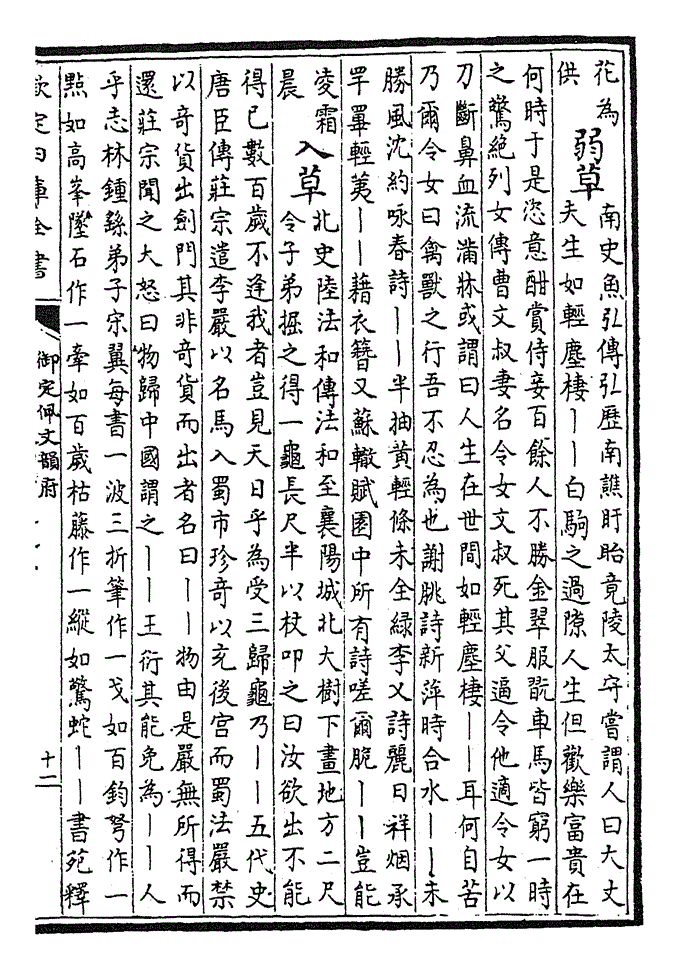 花為　　南史魚弘傳弘歷南譙盱眙竟陵太守嘗謂人曰大丈
供　弱草　夫生如輕塵棲——白駒之過隙人生但歡樂富貴在
何時于是恣意酣賞侍妾百餘人不勝金翠服翫車馬皆窮一時
之驚絶列女傳曹文叔妻名令女文叔死其父逼令他適令女以
刀斷鼻血流滿牀或謂曰人生在世間如輕塵棲——耳何自苦
乃爾令女曰禽獸之行吾不忍為也謝朓詩新萍時合水——未
勝風沈約咏春詩——半抽黃輕條未全綠李乂詩麗日祥烟承
罕罼輕荑——藉衣簪又蘇轍賦園中所有詩嗟爾脆——豈能
凌霜　　北史陸法和傳法和至襄陽城北大樹下畫地方二尺
晨　入草　令子弟掘之得一龜長尺半以杖叩之曰汝欲出不能
得已數百歲不逢我者豈見天日乎為受三歸龜乃——五代史
唐臣傳莊宗遣李嚴以名馬入蜀市珍奇以充後宮而蜀法嚴禁
以奇貨出劍門其非奇貨而出者名曰——物由是嚴無所得而
還莊宗聞之大怒曰物歸中國謂之——王衍其能免為——人
乎志林鍾繇弟子宗翼每書一波三折筆作一戈如百鈞弩作一
㸃如高峯墜石作一牽如百歲枯藤作一縱如驚蛇——書苑釋
欽定四庫全書
御定佩文韻府
十二